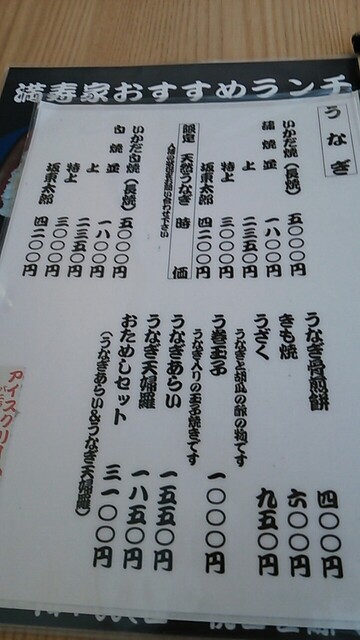 満寿家おすすめランチ
うなぎ
いかだ焼(長焼) 五〇〇〇円
蒲焼 並 一八〇〇円
上 二三五〇円
特上 三〇〇〇円
坂東太郎 四二〇〇円
限定 天然うなぎ 時価
入荷の状況をお問い合わせ下さい
いかだ白焼(長焼) 五〇〇〇円
白焼 並 一八〇〇円
上 二三五〇円
特上 三〇〇〇円
坂東太郎 四二〇〇円
うなぎ骨煎餅 四〇〇円
きも焼 六〇〇円
うざく 九五〇円
うなぎと胡瓜の酢の物です
う巻玉子 一〇〇〇円
うなぎ入りの玉子焼きです
うなぎあらい 一五五〇円
うなぎ天婦羅 一八五〇円
おためしセット 三一〇〇円
(うなぎあらい&うなぎ天婦羅)
アイスクリー